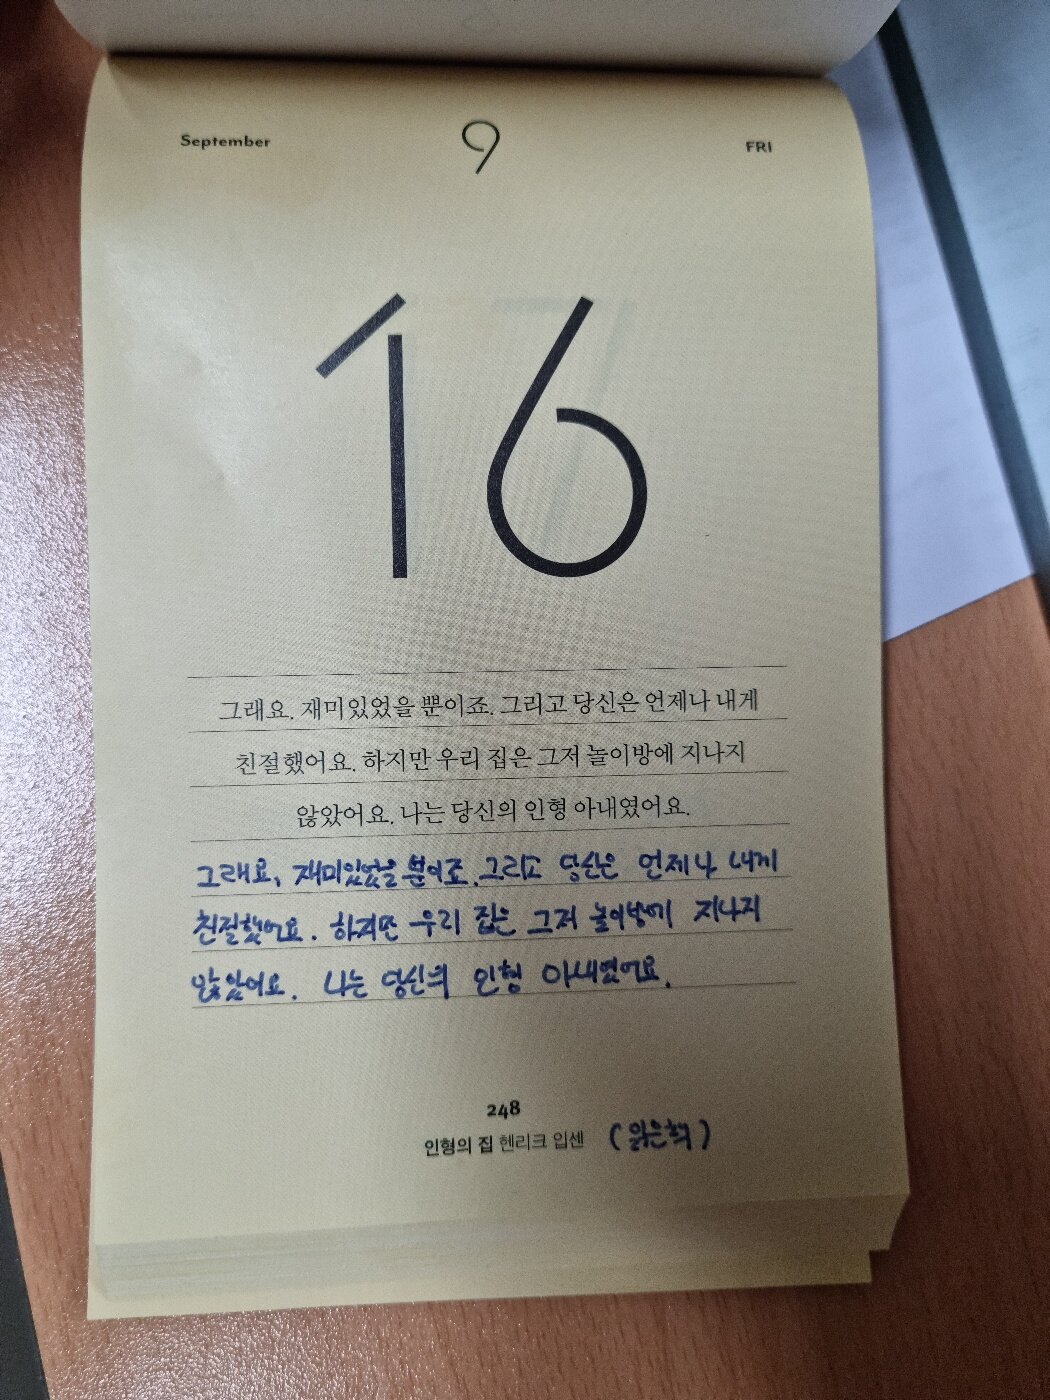 September 9 FRI
16
그래요. 재미있었을 뿐이죠. 그리고 당신은 언제나 내게
친절했어요. 하지만 우리 집은 그저 놀이방에 지나지
않았어요. 나는 당신의 인형 아내였어요.
그래요. 재미있었을 뿐이죠. 그리고 당신은 언제나 내게
친절했어요. 하지만 우리 집은 그저 놀이방에 지나지
않았어요. 나는 당신의 인형 아내였어요.
248
인형의 집 헨리크 입센 (읽은책)